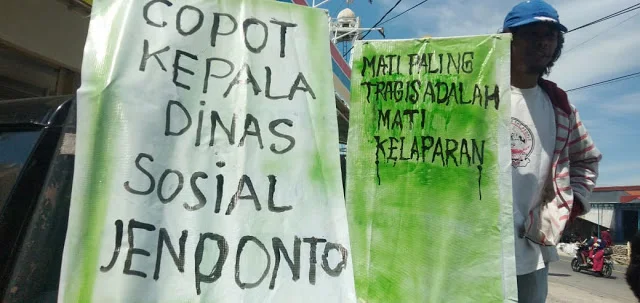 COPOT
KEPALA
DINAS
SOSIAL
JENPONTO
MATI PALING
TRAGIS ADALAH
MATI
KELAPARAN